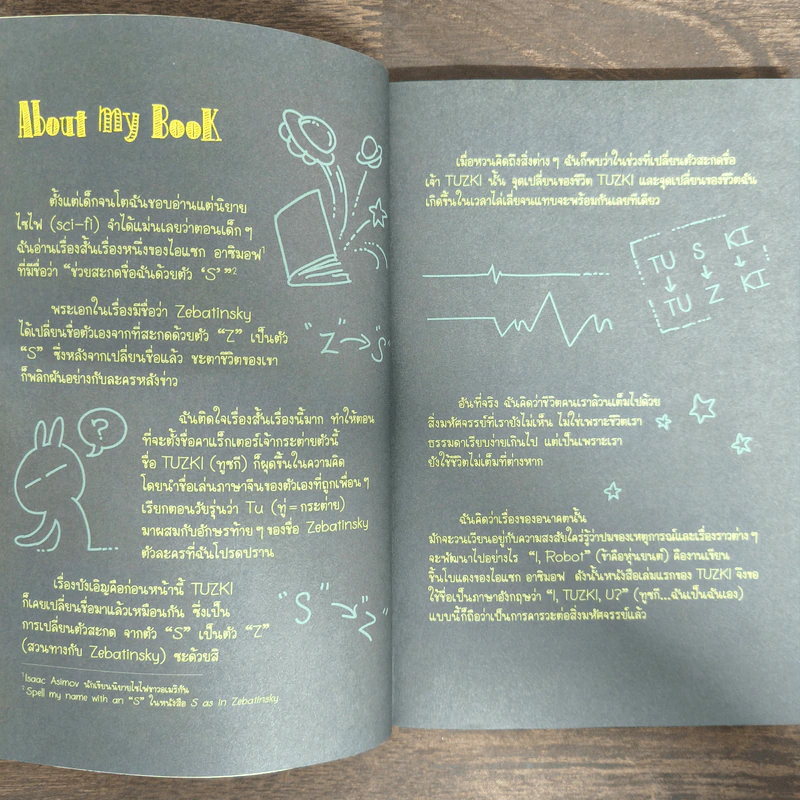 About my Book
ตั้งแต่เด็กจนโตฉันชอบอ่านแต่นิยาย
ไซไฟ (sci-fi) จำได้แม่นเลยว่าตอนเด็ก ๆ
ฉันอ่านเรื่องสั้นเรื่องหนึ่งของไอแซก อาซิมอฟ¹
ที่มีชื่อว่า “ช่วยสะกดชื่อฉันด้วยตัว ‘S’ ”²
พระเอกในเรื่องมีชื่อว่า Zebatinsky
ได้เปลี่ยนชื่อตัวเองจากที่สะกดด้วยตัว “Z” เป็นตัว
“S” ซึ่งหลังจากเปลี่ยนชื่อแล้ว ชะตาชีวิตของเขา
ก็พลิกผันอย่างกับละครหลังข่าว
“Z”→“S”
?
ฉันติดใจเรื่องสั้นเรื่องนี้มาก ทำให้ตอน
ที่จะตั้งชื่อคาแร็กเตอร์เจ้ากระต่ายตัวนี้
ชื่อ TUZKI (ทูซกี) ก็ผุดขึ้นในความคิด
โดยนำชื่อเล่นภาษาจีนของตัวเองที่ถูกเพื่อน ๆ
เรียกตอนวัยรุ่นว่า Tu (ทู่ = กระต่าย)
มาผสมกับอักษรท้าย ๆ ของชื่อ Zebatinsky
ตัวละครที่ฉันโปรดปราน
เรื่องบังเอิญคือก่อนหน้านี้ TUZKI
ก็เคยเปลี่ยนชื่อมาแล้วเหมือนกัน ซึ่งเป็น
การเปลี่ยนตัวสะกด จากตัว “S” เป็นตัว “Z”
(สวนทางกับ Zebatinsky) ซะด้วยสิ
“S”→“Z”
¹Isaac Asimov นักเขียนนิยายไซไฟชาวอเมริกัน
²Spell my name with an “S” ในหนังสือ S as in Zebatinsky
เมื่อหวนคิดถึงสิ่งต่าง ๆ ฉันก็พบว่าในช่วงที่เปลี่ยนตัวสะกดชื่อ
เจ้า TUZKI นั้น จุดเปลี่ยนของชีวิต TUZKI และจุดเปลี่ยนของชีวิตฉัน
เกิดขึ้นในเวลาไล่เลี่ยจนแทบจะพร้อมกันเลยทีเดียว
TU S KI
↓ ↓ ↓
TU Z KI
อันที่จริง ฉันคิดว่าชีวิตคนเราล้วนเต็มไปด้วย
สิ่งมหัศจรรย์ที่เรายังไม่เห็น ไม่ใช่เพราะชีวิตเรา
ธรรมดาเรียบง่ายเกินไป แต่เป็นเพราะเรา
ยังใช้ชีวิตไม่เต็มที่ต่างหาก
ฉันคิดว่าเรื่องของอนาคตนั้น
มักจะวนเวียนอยู่กับความสงสัยใคร่รู้ว่าปมของเหตุการณ์และเรื่องราวต่าง ๆ
จะพัฒนาไปอย่างไร “I, Robot” (ข้าคือหุ่นยนต์) คืองานเขียน
ชิ้นโบแดงของไอแซก อาซิมอฟ ดังนั้นหนังสือเล่มแรกของ TUZKI จึงขอ
ใช้ชื่อเป็นภาษาอังกฤษว่า “I, TUZKI, U?” (ทูซกี...ฉันเป็นฉันเอง)
แบบนี้ก็ถือว่าเป็นการคารวะต่อสิ่งมหัศจรรย์แล้ว